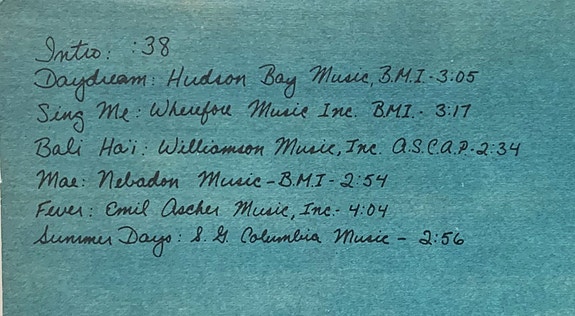 Intro: :38
Daydream: Hudson Bay Music, B.M.I - 3:05
Sing Me: Wherefore Music Inc. B.M.I. - 3:17
Bali Ha'i: Williamson Music, Inc. A.S.C.A.P. - 2:34
Mae: Nebadon Music - B.M.I - 2:54
Fever: Emil Ascher Music, Inc. - 4:04
Summer Days: S. G. Columbia Music - 2:56